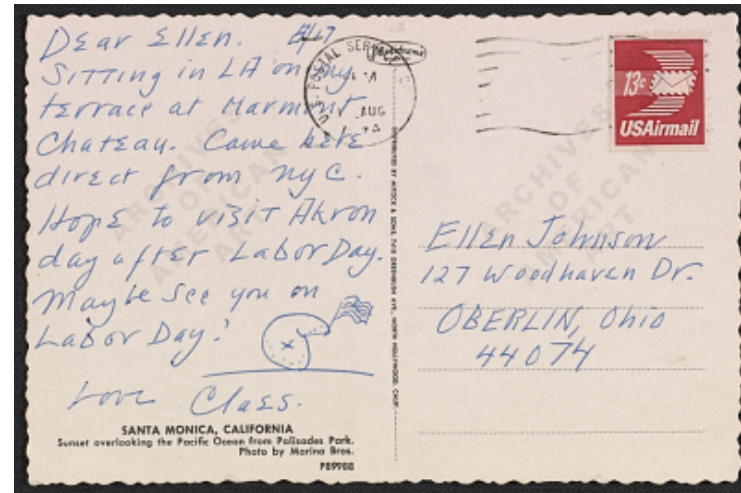 Dear Ellen. 8/17
Sitting in LA on my
terrace at Marmont
Chateau. Came here
direct from NYC.
Hope to visit Akron
day after Labor Day.
Maybe see you on
Labor Day?
Love Claes.
SANTA MONICA, CALIFORNIA
Sunset overlooking the Pacific Ocean from Palisades Park.
Photo by Marino Bros.
P89988
DISTRIBUTED BY MITOCK & SONS, GREENBUSH AVE., NORTH HOLLYWOOD, CALIF.
U.S. POSTAL SERVICE
AUG
13c
USAirmail
Ellen Johnson
127 Woodhaven Dr.
OBERLIN, Ohio
44074
ARCHIVES
OF
AMERICAN
ART
ARCHIVES
OF
AMERICAN
ART